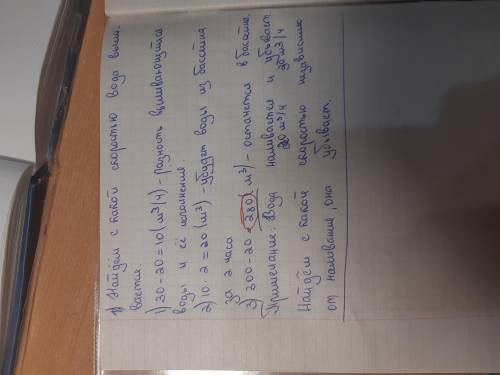 1) Найдём с какой скоростью вода выли-
вается.
1) 30-20=10(м³/ч) - разность выливающийся
воды и её наполнения.
2) 10·2=20(м³) - убудет воды из бассейна
за 2 часа
3) 300-20=280(м³) - останется в бассейне.
Примечание: Вода наливается и убывает.
20м³/ч 30м³/ч
Найдём с какой скоростью независимо
от наливания, она убывает.